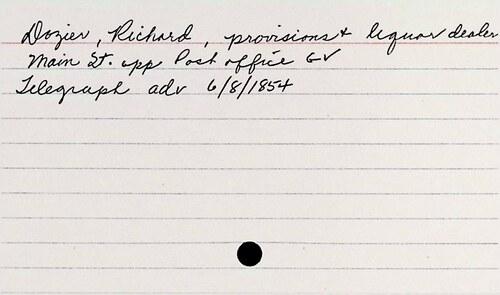 Dozier, Richard, provisions & liquor dealer
Main St. opp Post office GV
Telegraph adv 6/8/1854